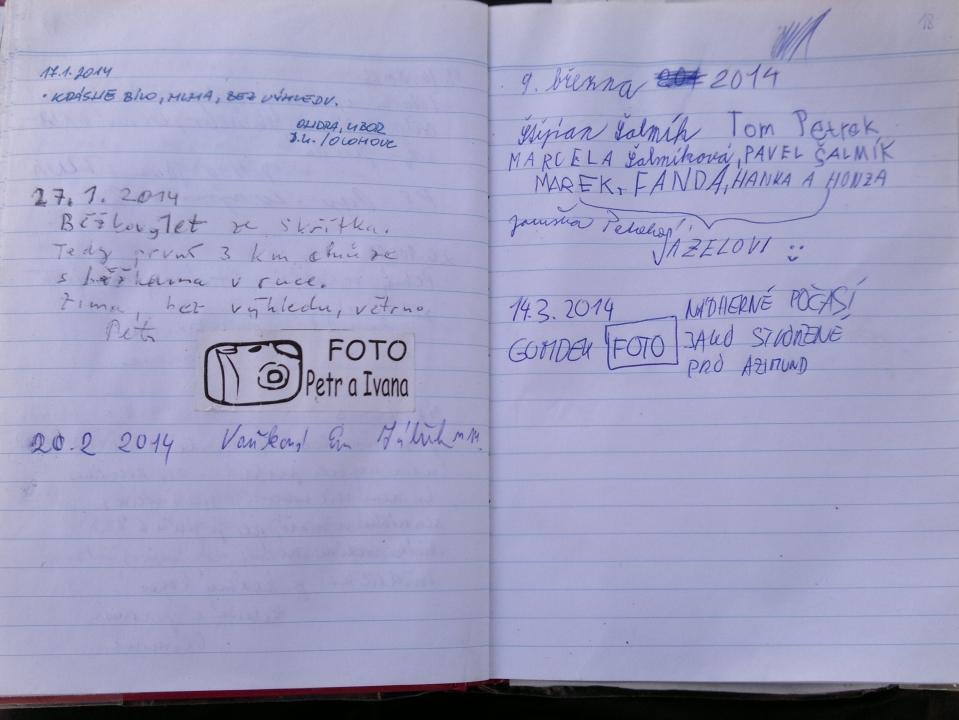 17.1.2014
• KRÁSNE BÍLO, MLHA, BEZ VÝHLEDU.
ONDRA, LIBOR
J.H. / OLOMOUC
27.1.2014
Běžkovýlet ze Skřítka.
Tedy první 3 km chůze
s běžkama v ruce.
Zima, bez výhledu, větrno.
Petr
FOTO
Petr a Ivana
20.2 2014
18
9. března 2014
Štěpán Šalmík Tom Petrek
MARCELA Šalmíková, PAVEL ŠALMÍK
MAREK, FANDA, HANKA A HONZA
JAZELOVI
14.3.2014 NÁDHERNÉ POČASÍ
FOTO JAKO STVOŘENÉ
PRO AZIMUND